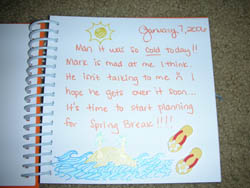 January 7, 2006
Man it was so cold today!!
Mark is mad at me I think.
He isn't talking to me :( I
hope he gets over it soon...
It's time to start planning
for Spring Break!!!!